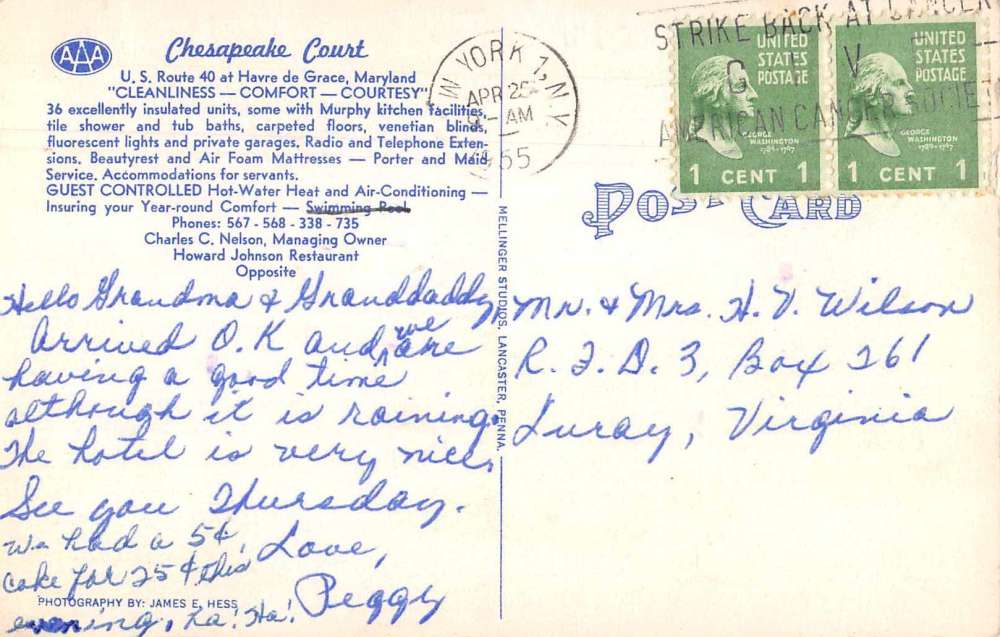 AAA
Chesapeake Court
U. S. Route 40 at Havre de Grace, Maryland
"CLEANLINESS — COMFORT — COURTESY"
36 excellently insulated units, some with Murphy kitchen facilities,
tile shower and tub baths, carpeted floors, venetian blinds,
fluorescent lights and private garages. Radio and Telephone Exten-
sions. Beautyrest and Air Foam Mattresses — Porter and Maid
Service. Accommodations for servants.
GUEST CONTROLLED Hot-Water Heat and Air-Conditioning —
Insuring your Year-round Comfort — Swimming Pool
Phones: 567 - 568 - 338 - 735
Charles C. Nelson, Managing Owner
Howard Johnson Restaurant
Opposite
Hello Grandma & Granddaddy,
Arrived O.K and we are
having a good time
although it is raining.
The hotel is very nice.
See you Thursday.
Love,
Peggy
We had a 5¢
coke for 25¢ this
evening, ha! Ha!
PHOTOGRAPHY BY: JAMES E. HESS
MELLINGER STUDIOS, LANCASTER, PENNA.
W YORK 1, N.Y.
APR 25
AM
1955
STRIKE BACK AT CANCER
G I V
AMERICAN CANCER SOCIET
UNITED
STATES
POSTAGE
GEORGE
WASHINGTON
1789-1797
1 CENT 1
UNITED
STATES
POSTAGE
GEORGE
WASHINGTON
1789-1797
1 CENT 1
POST CARD
Mr. & Mrs. H. V. Wilson
R. F. D. 3, Box 261
Luray, Virginia